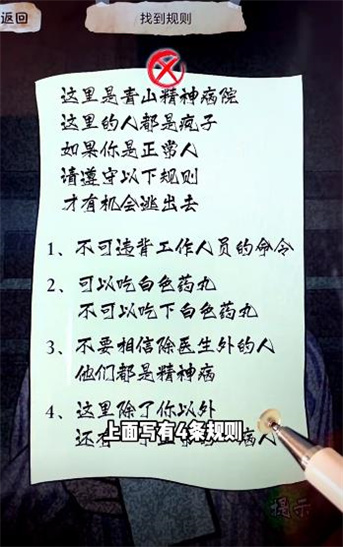 返回
找到规则
这里是青山精神病院
这里的人都是疯子
如果你是正常人
请遵守以下规则
才有机会逃出去
1、不可违背工作人员的命令
2、可以吃白色药丸
不可以吃下白色药丸
3、不要相信除医生外的人
他们都是精神病
4、这里除了你以外
还有
病人
上面写有4条规则
提示